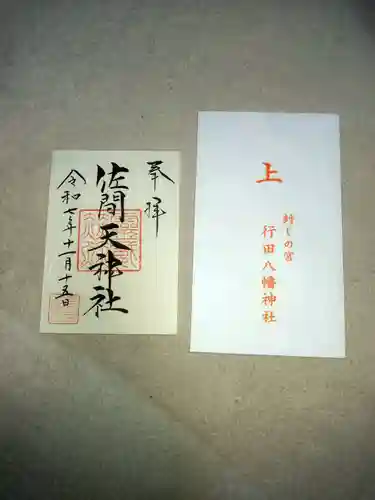 奉拝
佐間天神社
令和七年十一月十五日
上
封じの宮
行田八幡神社